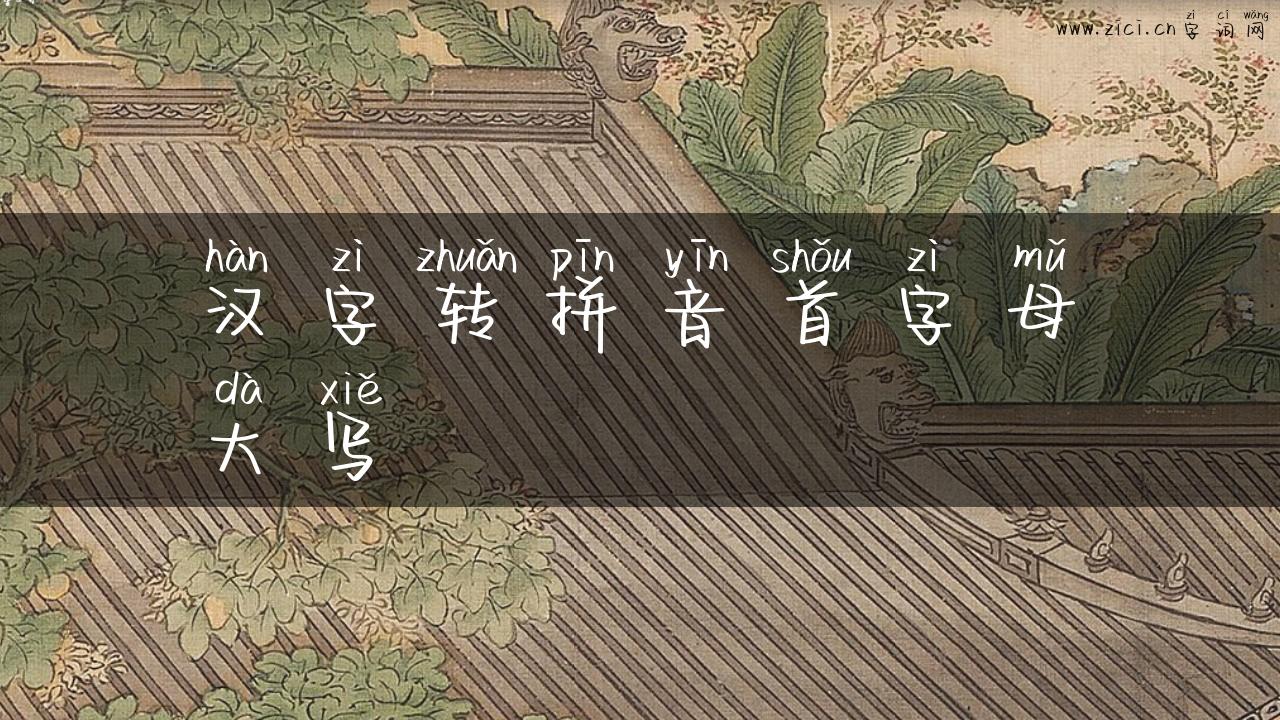 zì cí wǎng
www.zici.cn 字 词 网
hàn zì zhuǎn pīn yīn shǒu zì mǔ
汉 字 转 拼 音 首 字 母
dà xiě
大 写